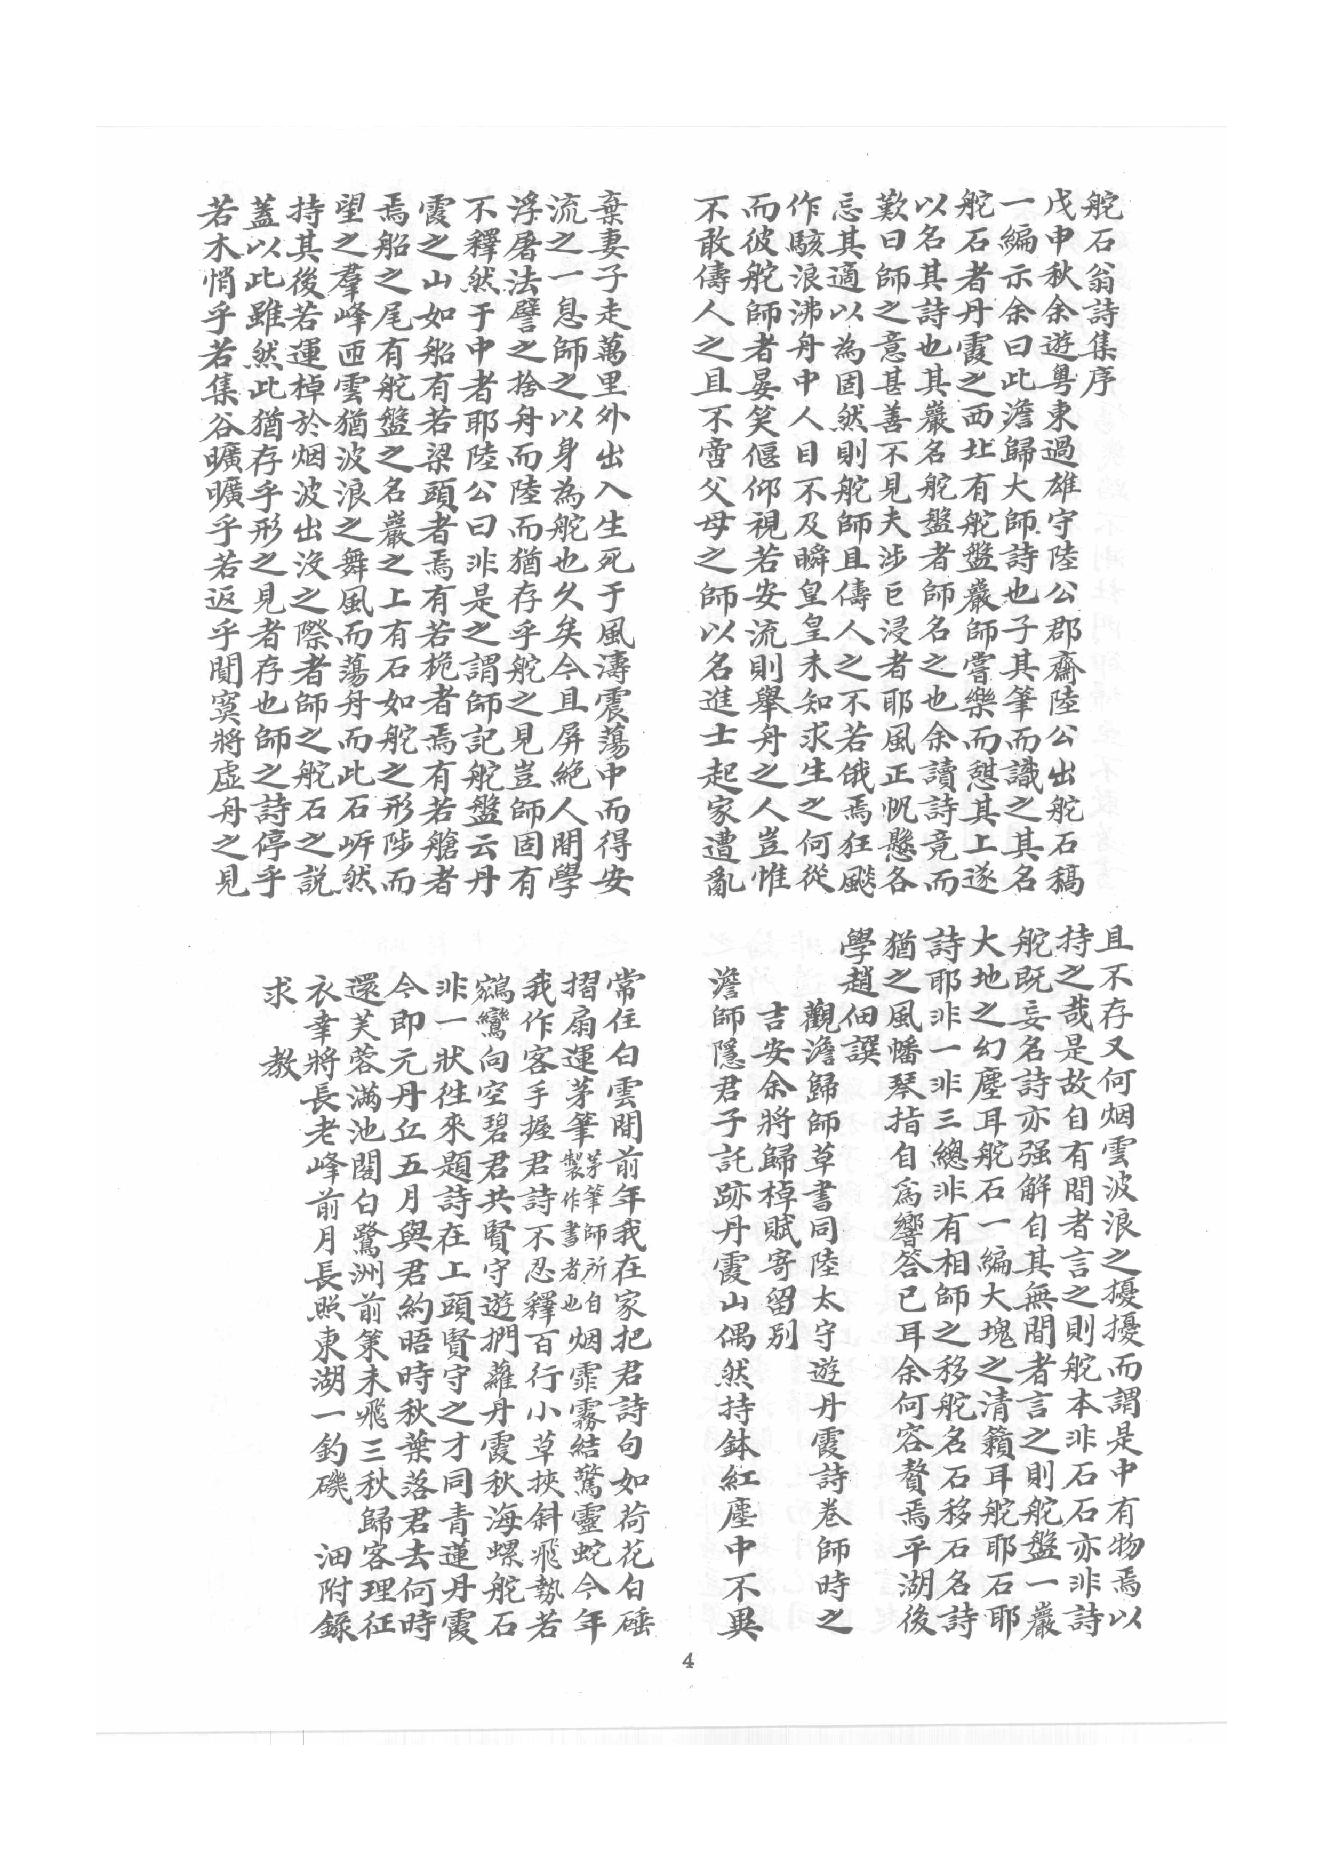 舵石翁詩集序
戊申秋余遊粵東過雄守陸公郡齋陸公出舵石稿
一編示余曰此澹歸大師詩也子其筆而識之其名
舵石者丹霞之西北有舵盤巖師嘗樂而憩其上遂
以名其詩也其巖名舵盤者師名之也余讀詩竟而
歎曰師之意甚善不見夫涉巨浸者耶風正帆懸各
忘其適以為固然則舵師且儔人之不若俄焉狂飈
作駭浪沸舟中人目不及瞬皇皇未知求生之何從
而彼舵師者晏笑偃仰視若安流則舉舟之人豈惟
不敢儔人之且不啻父母之師以名進士起家遭亂
棄妻子走萬里外出入生死于風濤震蕩中而得安
流之一息師之以身為舵也久矣今且屏絶人間學
浮屠法譬之捨舟而陸而猶存乎舵之見豈師固有
不釋然于中者耶陸公曰非是之謂師記舵盤云丹
霞之山如船有若梁頭者焉有若桅者焉有若艙者
焉船之尾有舵盤之名巖之上有石如舵之形陟而
望之羣峰匝雲猶波浪之舞風而蕩舟而此石岝然
持其後若運棹於烟波出沒之際者師之舵石之説
蓋以此雖然此猶存乎形之見者存也師之詩停乎
若木悄乎若集谷曠曠乎若返乎闃寞將虛舟之見
且不存又何烟雲波浪之擾擾而謂是中有物焉以
持之哉是故自有間者言之則舵本非石石亦非詩
舵既妄名詩亦强解自其無間者言之則舵盤一巖
大地之幻塵耳舵石一編大塊之清籟耳舵耶石耶
詩耶非一非三總非有相師之移舵名石移石名詩
猶之風幡琴指自爲響答已耳余何容贅焉平湖後
學趙佃譔
觀澹歸師草書同陸太守遊丹霞詩卷師時之
吉安余將歸棹賦寄留別
澹師隱君子託跡丹霞山偶然持鉢紅塵中不異
常住白雲閒前年我在家把君詩句如荷花白碰
摺扇運茅筆茅筆師所自製作書者也烟霏霧結驚靈蛇今年
我作客手握君詩不忍釋百行小草挾斜飛勢若
鵷鸞向空碧君共賢守遊捫蘿丹霞秋海螺舵石
非一狀徃來題詩在上頭賢守之才同青蓮丹霞
今即元丹丘五月與君約晤時秋葉落君去何時
還芙蓉滿池閣白鷺洲前策未飛三秋歸客理征
衣幸將長老峰前月長照東湖一釣磯　沺附錄
求　教
4